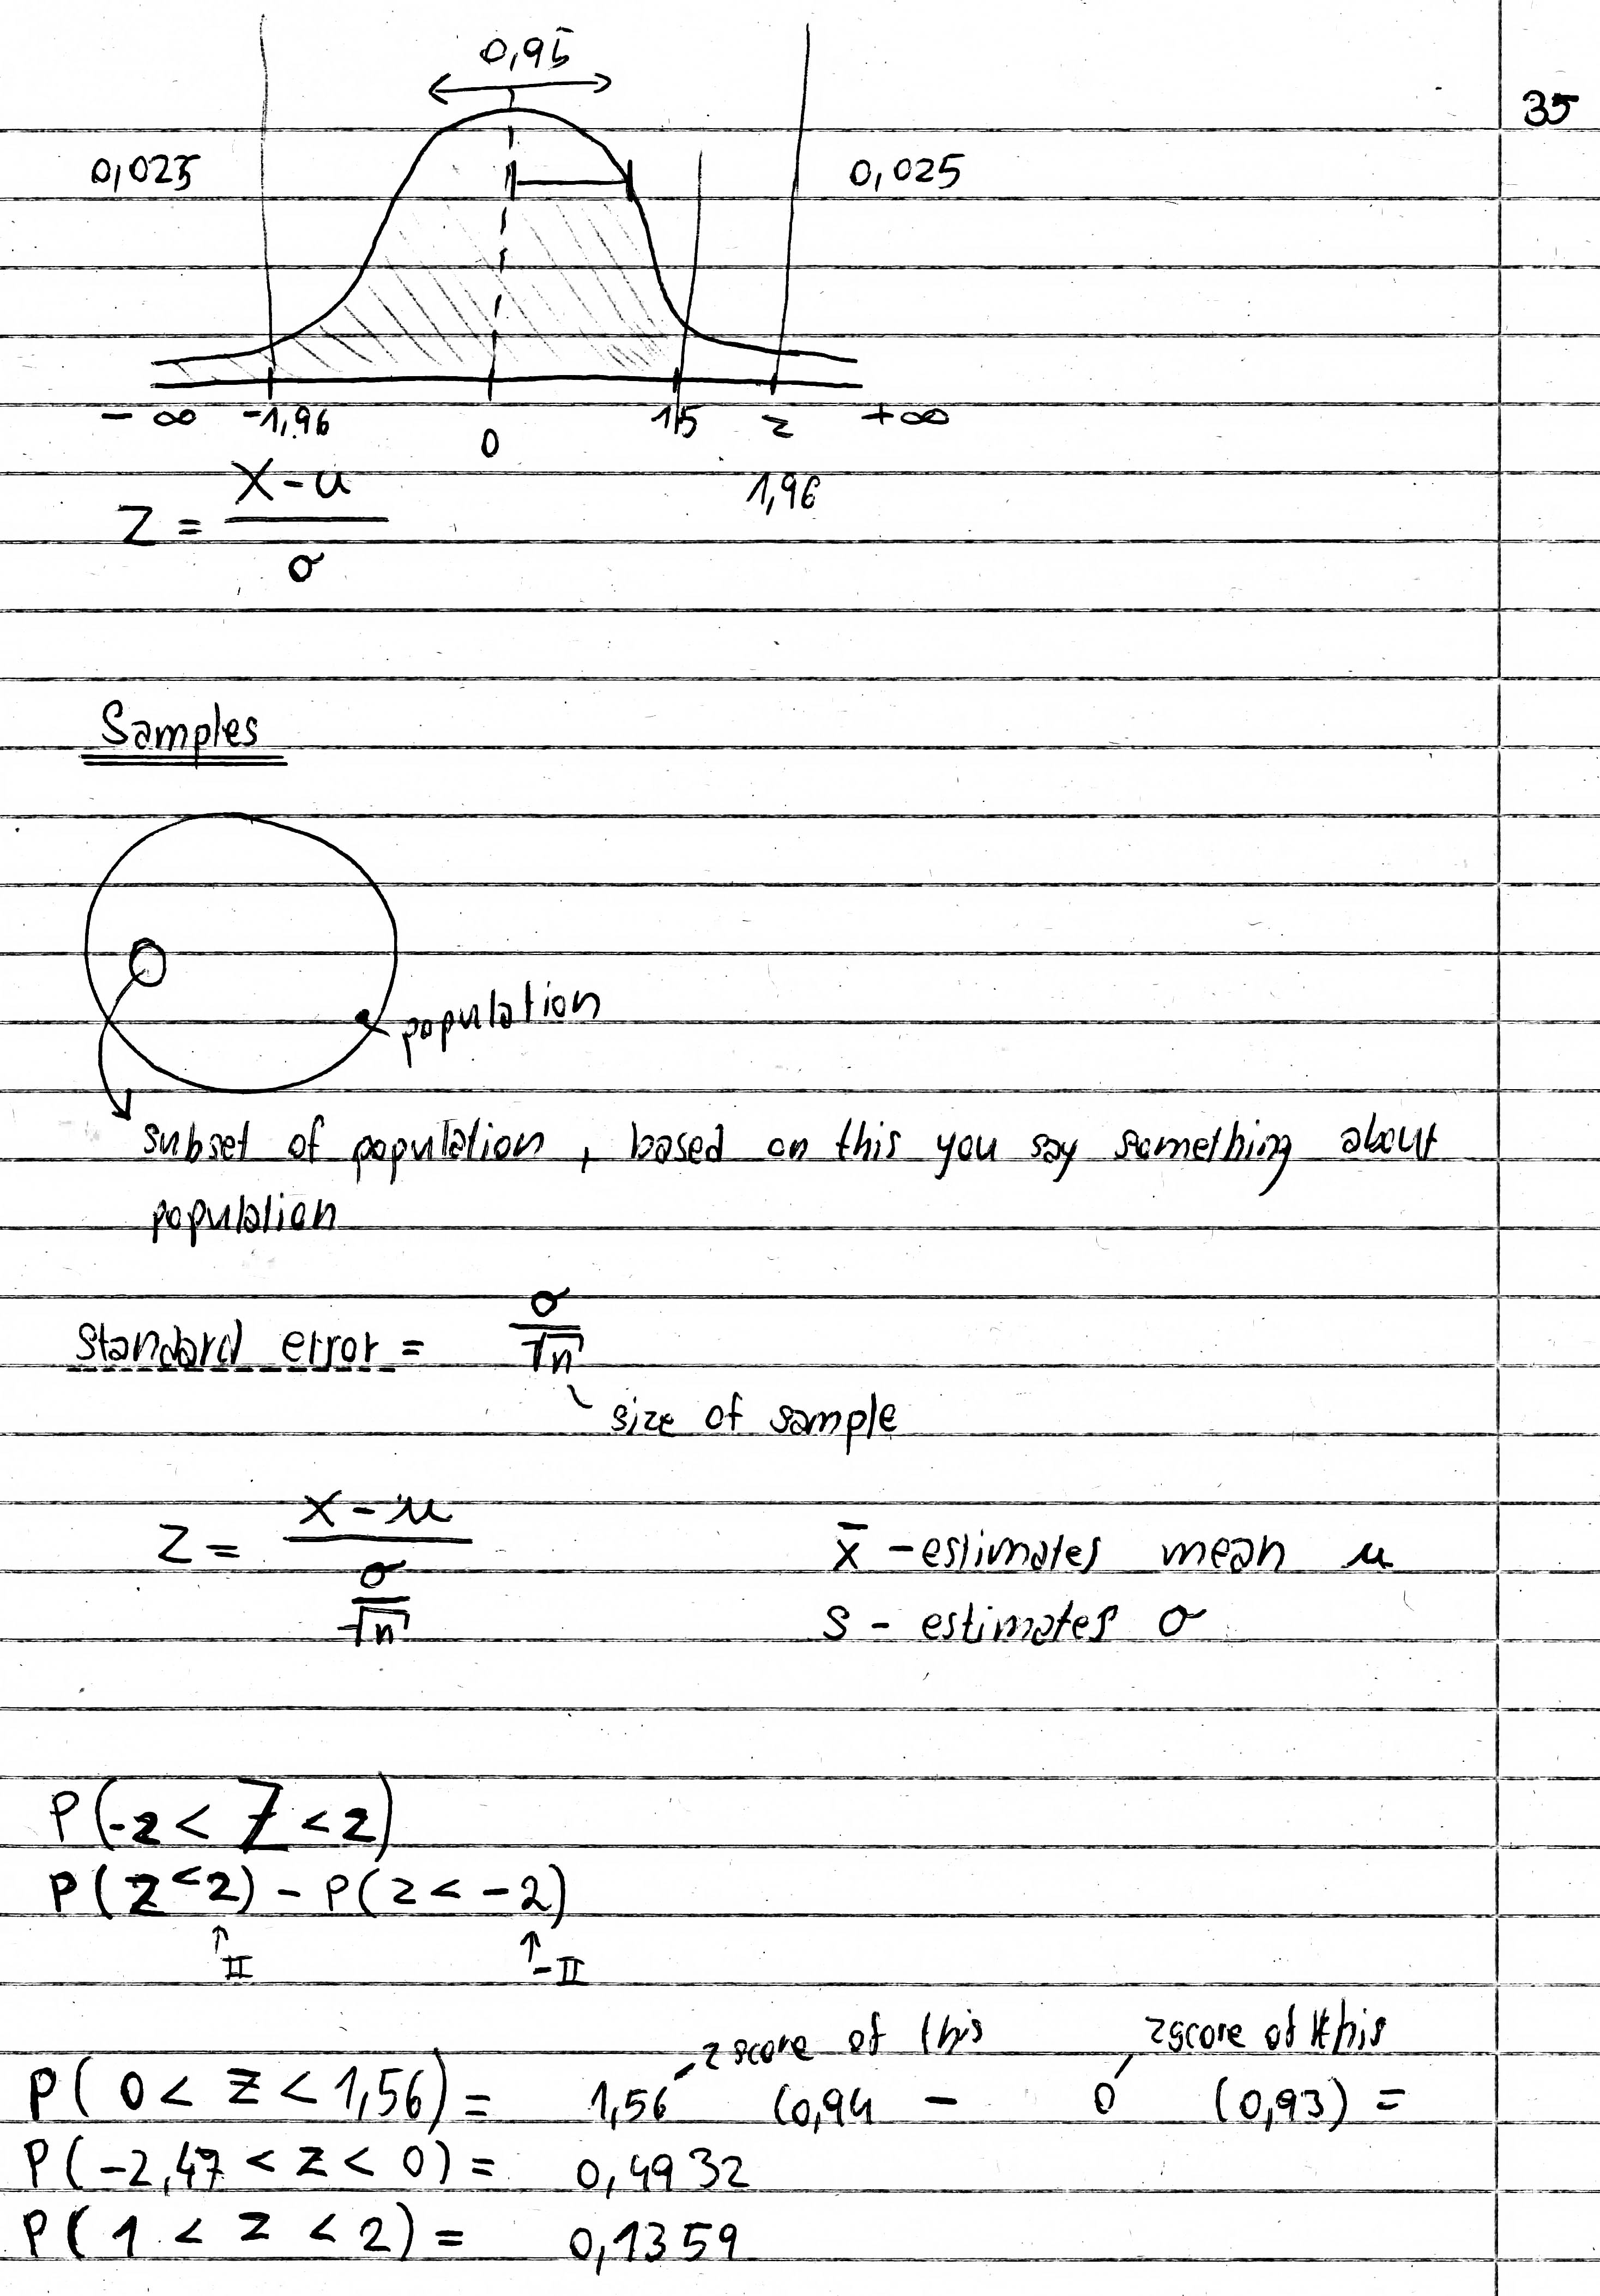 0,95
35
0,025 0,025
- ∞ -1,96 0 1,5 z +∞
1,96
Z = X - u / σ
Samples
population
subset of population, based on this you say something about
population
Standard error = σ / √n
size of sample
Z = X - u / σ / √n
x̄ - estimates mean u
S - estimates σ
P(-2 < Z < 2)
P(Z < 2) - P(z < -2)
↑ II ↑ -II
z score of this z score of this
P( 0 < Z < 1,56) = 1,56 (0,94 - 0 (0,93) =
P(-2,47 < z < 0) = 0,4932
P( 1 < z < 2) = 0,1359